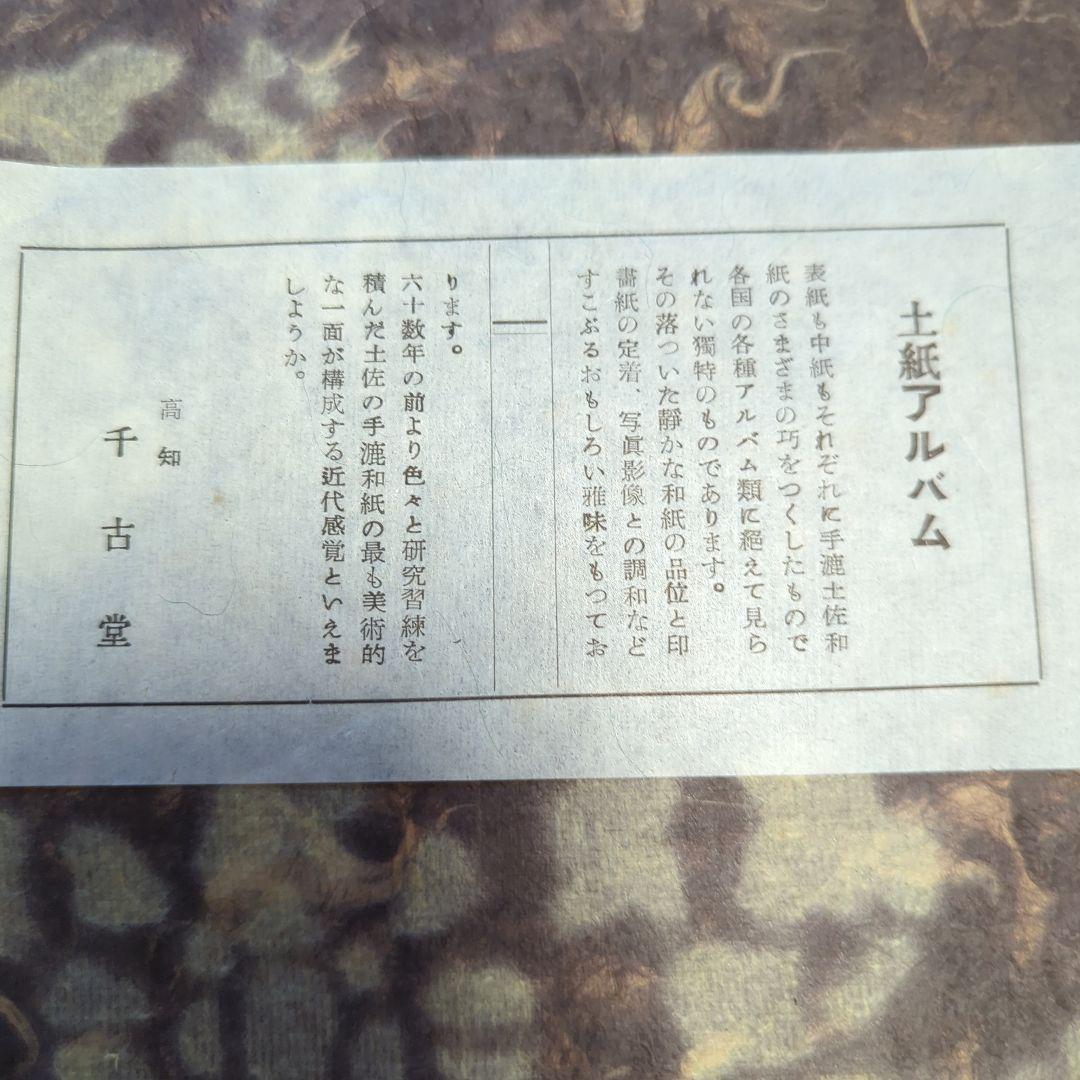 土紙アルバム
表紙も中紙もそれぞれに手漉土佐和
紙のさまざまの巧をつくしたもので
各国の各種アルバム類に絕えて見ら
れない獨特のものであります。
その落ついた靜かな和紙の品位と印
畵紙の定着、写眞影像との調和など
すこぶるおもしろい雅味をもつてお
ります。
六十数年の前より色々と研究習練を
積んだ土佐の手漉和紙の最も美術的
な一面が構成する近代感覚といえま
しようか。
高知
千古堂